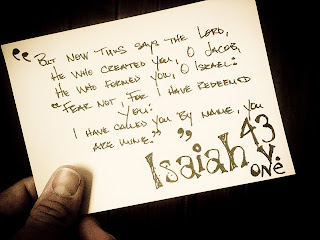 “But now thus says the Lord,
He who created you, O Jacob,
He who formed you, O Israel:
“Fear not, for I have redeemed
you:
I have called you by name, you
are mine.””
Isaiah 43
v. one